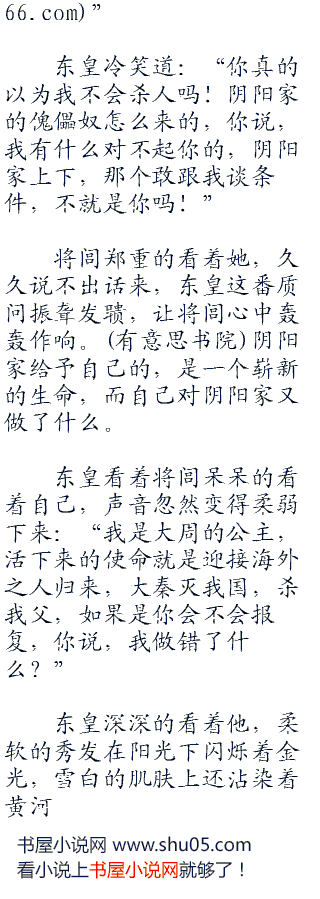 66.com)”
东皇冷笑道：“你真的
以为我不会杀人吗！阴阳家
的傀儡奴怎么来的，你说，
我有什么对不起你的，阴阳
家上下，那个敢跟我谈条
件，不就是你吗！”
将闾郑重的看着她，久
久说不出话来，东皇这番质
问振聋发聩，让将闾心中轰
轰作响。(有意思书院)阴阳
家给予自己的，是一个崭新
的生命，而自己对阴阳家又
做了什么。
东皇看着将闾呆呆的看
着自己，声音忽然变得柔弱
下来：“我是大周的公主，
活下来的使命就是迎接海外
之人归来，大秦灭我国，杀
我父，如果是你会不会报
复，你说，我做错了什
么？”
东皇深深的看着他，柔
软的秀发在阳光下闪烁着金
光，雪白的肌肤上还沾染着
黄河
书屋小说网 www.shu05.com
看小说上书屋小说网就够了！